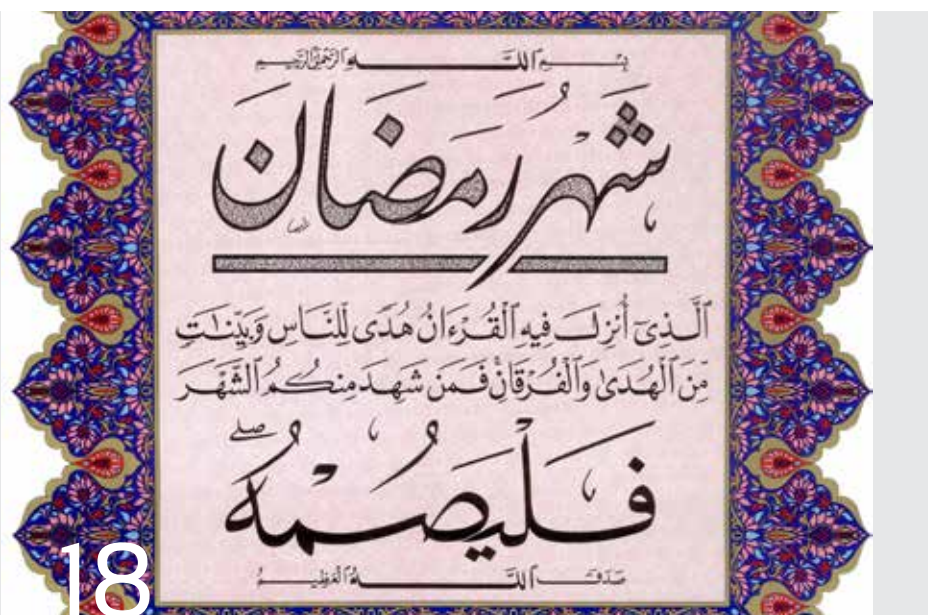 بِسْمِ ٱللَّهِ ٱلرَّحْمَٰنِ ٱلرَّحِيمِ
شَهْرُ رَمَضَانَ
ٱلَّذِىٓ أُنزِلَ فِيهِ ٱلْقُرْءَانُ هُدًى لِّلنَّاسِ وَبَيِّنَٰتٍ
مِّنَ ٱلْهُدَىٰ وَٱلْفُرْقَانِۚ فَمَن شَهِدَ مِنكُمُ ٱلشَّهْرَ
فَلْيَصُمْهُۖ
صَدَقَ ٱللَّهُ ٱلْعَظِيمُ
18